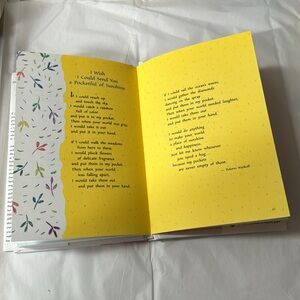 I Wish
I Could Send You
a Pocketful of Sunshine
If I could reach up
and touch the sky,
I would catch a rainbow
full of color
and put it in my pocket.
Then when your world was gray,
I would take it out
and put it in your hand.
If I could walk the meadows
from here to there,
I would pluck flowers
of delicate fragrance
and put them in my pocket.
Then when your world
was falling apart,
I would take them out
and put them in your hand.
If I could sail the ocean's waves,
I would gather the diamonds
dancing on the spray
and put them in my pocket.
Then when your world needed laughter,
I would take them out
and put them in your hand.
I would do anything
to make your world
a place of sunshine
and happiness.
Just let me know whenever
you need a hug
because my pockets
are never empty of those.